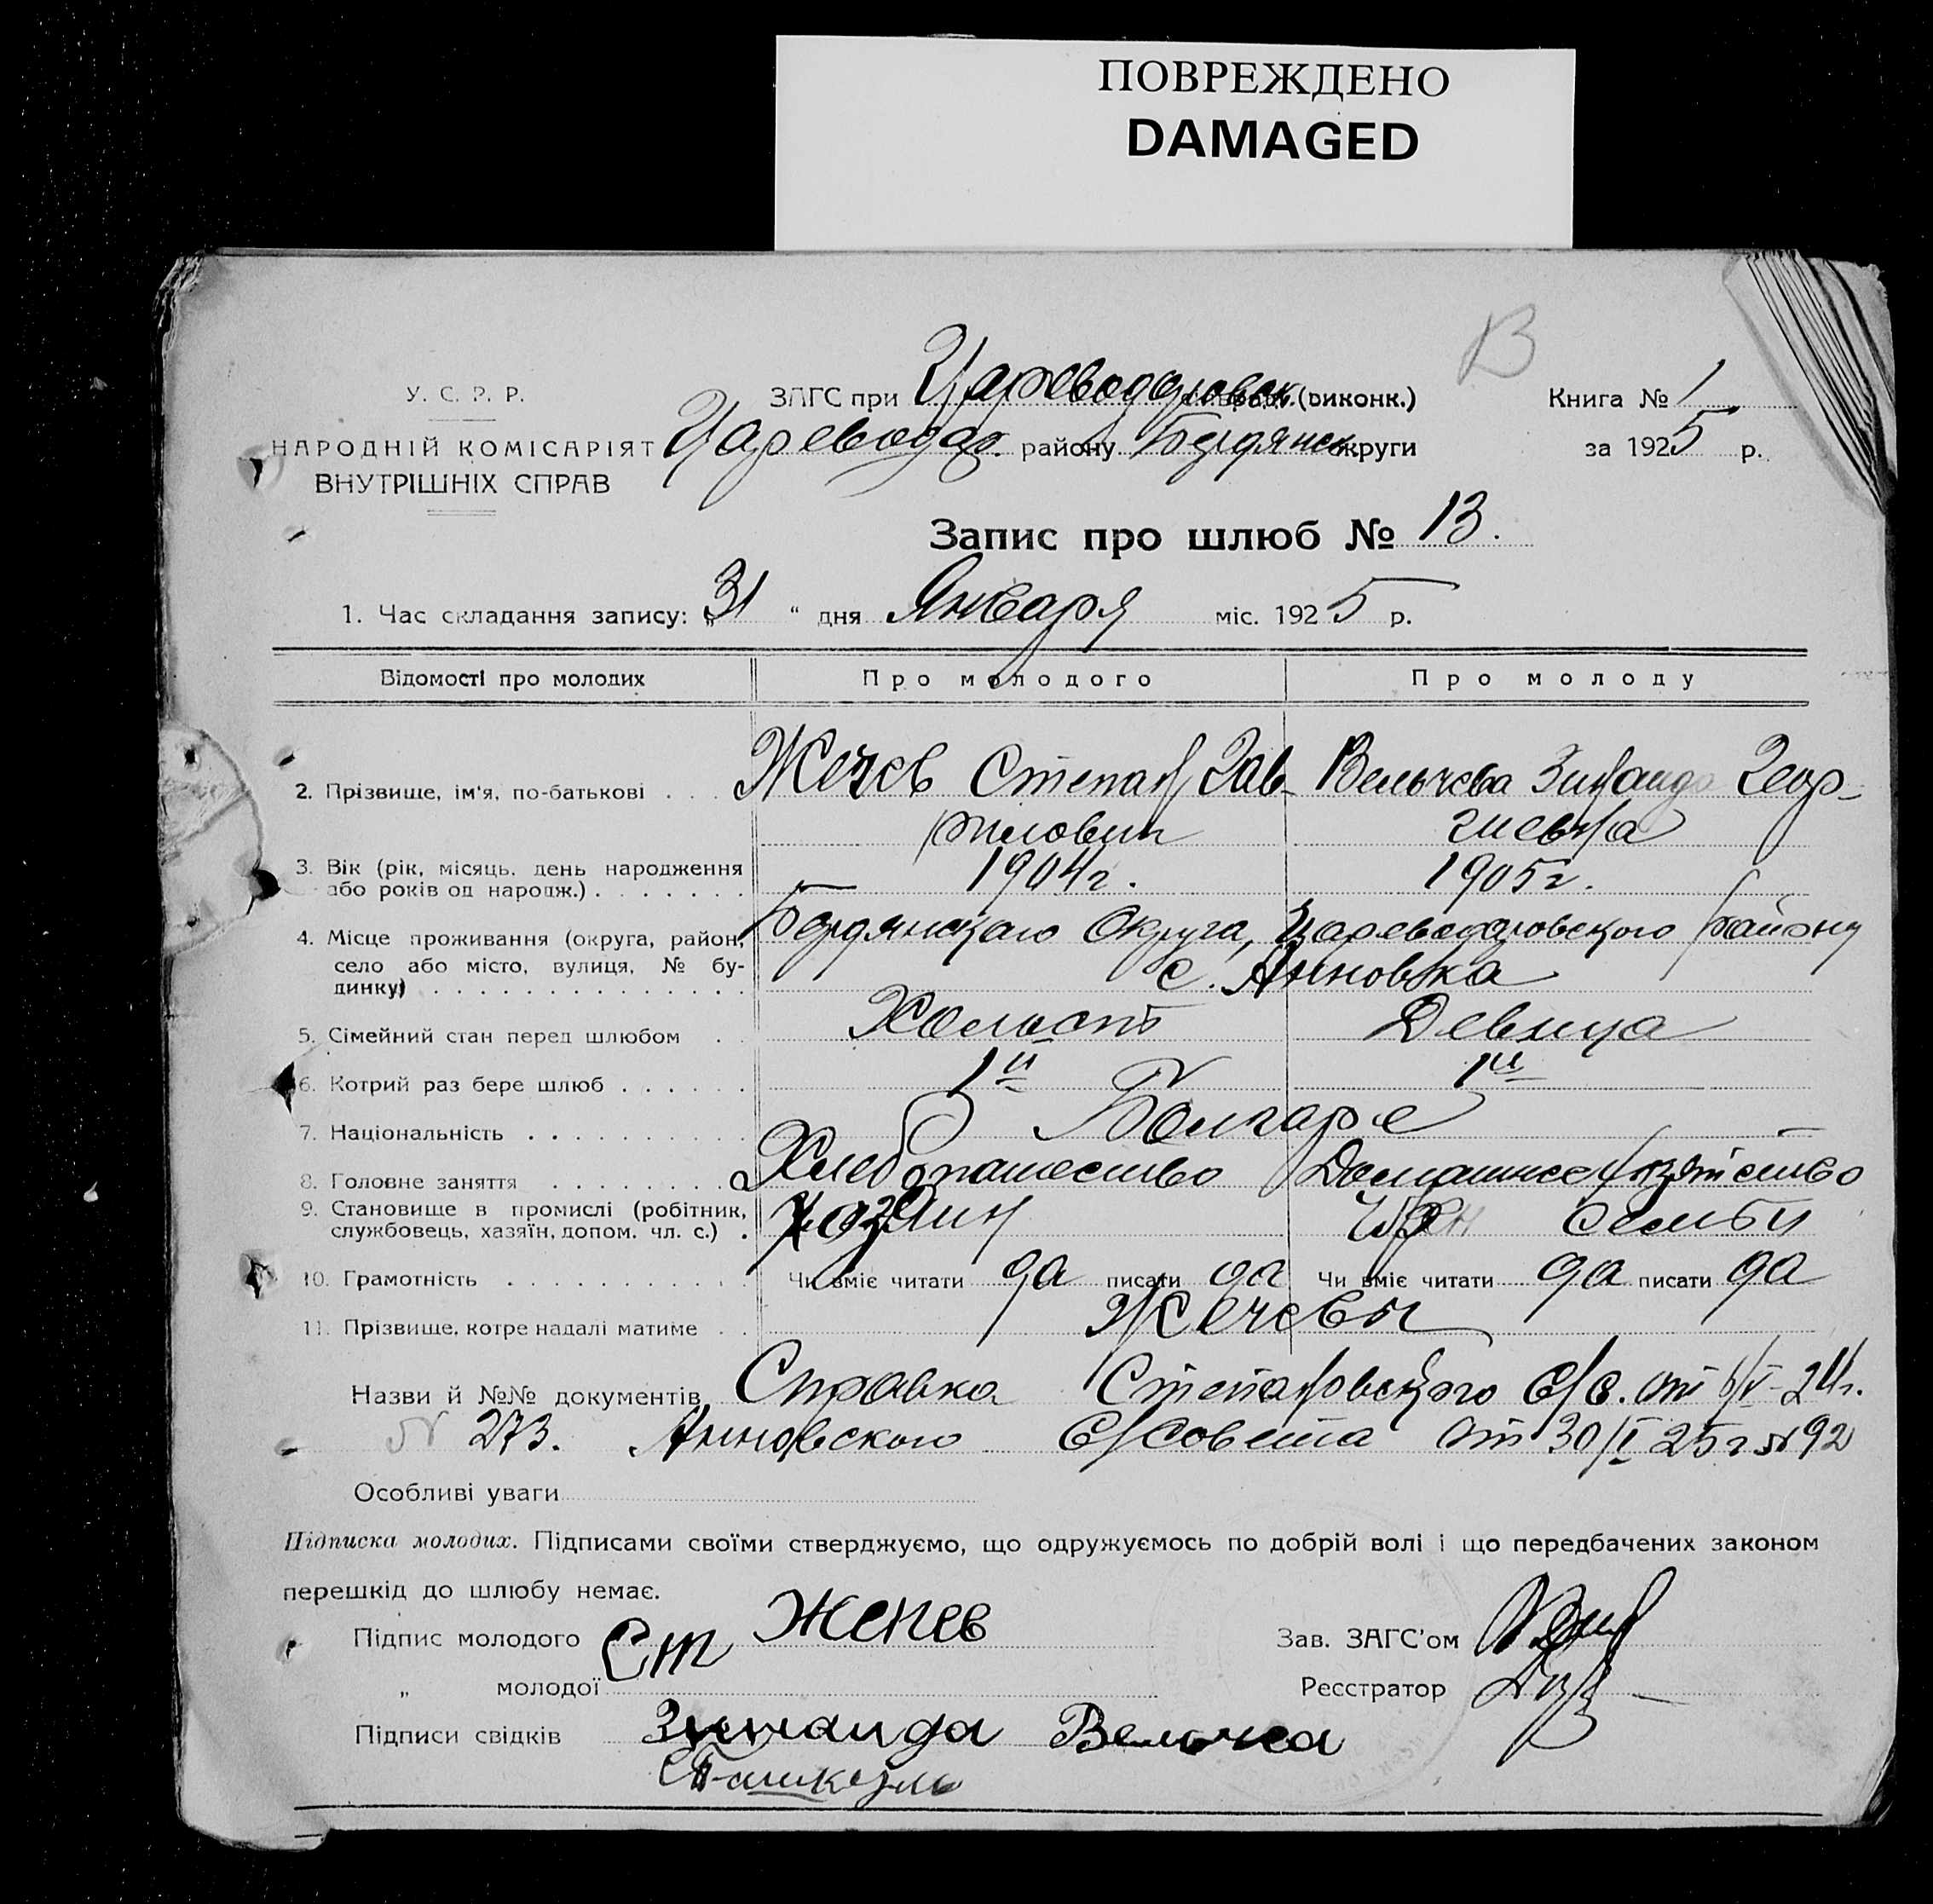 ПОВРЕЖДЕНО
DAMAGED
В
У. С. Р. Р.
ЗАГС при Цареводаровск. (виконк.)
Книга № 1
НАРОДНІЙ КОМІСАРІЯТ
ВНУТРІШНІХ СПРАВ
Цареводар. району Бердянск. округи
за 1925 р.
Запис про шлюб № 13.
1. Час складання запису: „31 “ дня Января міс. 1925 р.
Відомості про молодих Про молодого Про молоду
2. Прізвище, ім'я, по-батькові . . . Жечев Степан Гав- Вельчева Зинаида Геор-
рилович гиевна
3. Вік (рік, місяць, день народження
або років од народж.) . . . . . . . 1904 г. 1905 г.
4. Місце проживання (округа, район, Бердянского Округа, Цареводаровского района
село або місто, вулиця, № бу-
динку) . . . . . . . . . . . . . . с. Анновка
5. Сімейний стан перед шлюбом . . Холост Девица
6. Котрий раз бере шлюб . . . . . . 1й 1й
7. Національність . . . . . . . . . . Болгаре
8. Головне заняття . . . . . . . . Хлебопашество Домашнее хозяйство
9. Становище в промислі (робітник,
службовець, хазяїн, допом. чл. с.) . Хозяин Член семьи
10. Грамотність . . . . . . . . . . . Чи вміє читати да писати да Чи вміє читати да писати да
11. Прізвище, котре надалі матиме . . Жечевы
Назви й №№ документів Справка Степановского С/С. от 6/V-24г.
№ 273. Анновского С/Совета от 30/I 25 г № 92
Особливі уваги
Підписка молодих. Підписами своїми стверджуємо, що одружуємось по добрій волі і що передбачених законом
перешкід до шлюбу немає.
Підпис молодого Ст Жечев
Зав. ЗАГС'ом
„ молодої
Реєстратор
Підписи свідків Зинаида Вельчеа